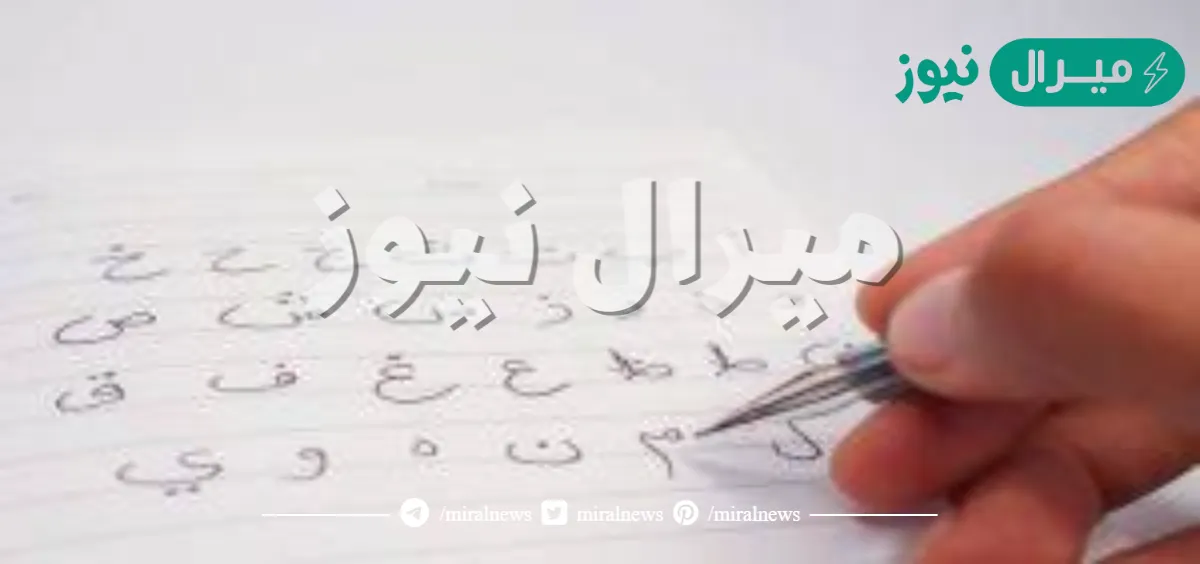 ميرال نيوز
ميرال نيوز
ح خ
ز س ش ص
ض ط ظ ع غ ف ق
ل م ن ه و ي
/miralnews miralnews /miralnews